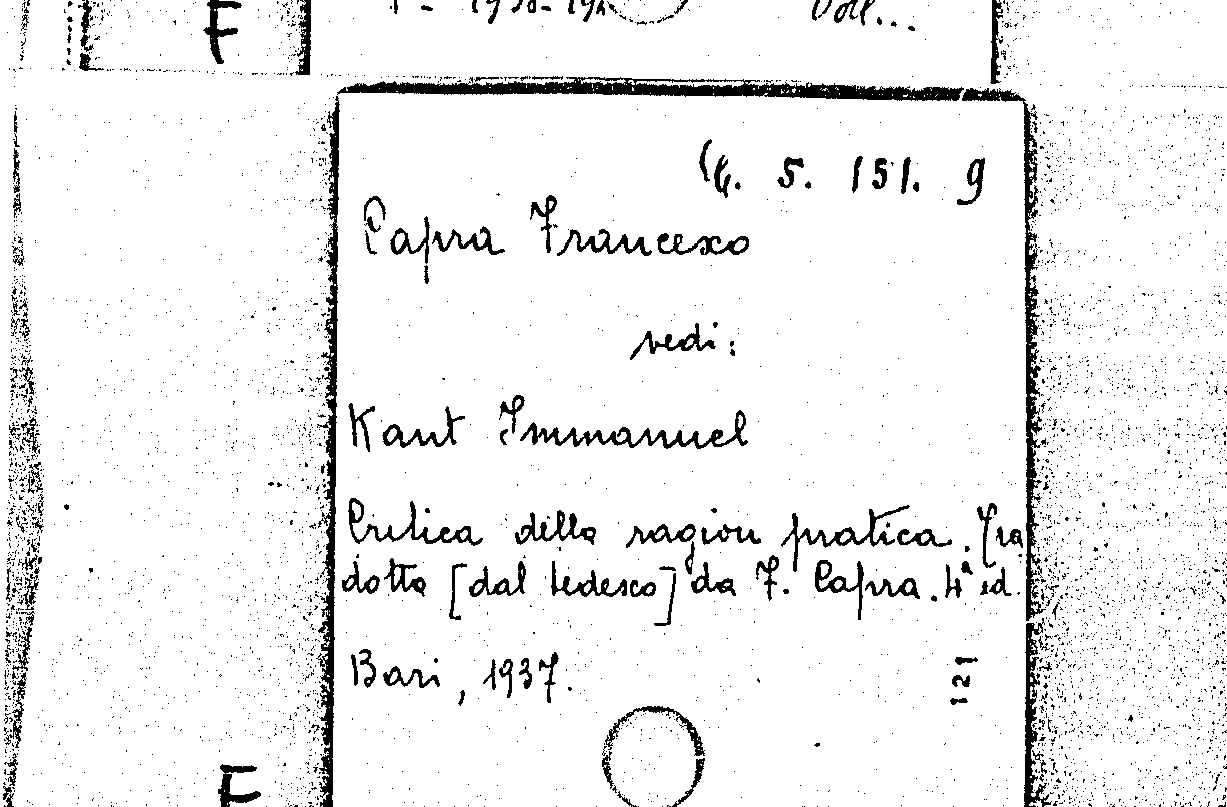 F
Voll...
(6. 5. 151. 9
Capra Francesco
vedi:
Kant Immanuel
Critica della ragion pratica. Tra
dotta [dal tedesco] da F. Capra. 4ª ed.
Bari, 1937.
121
F